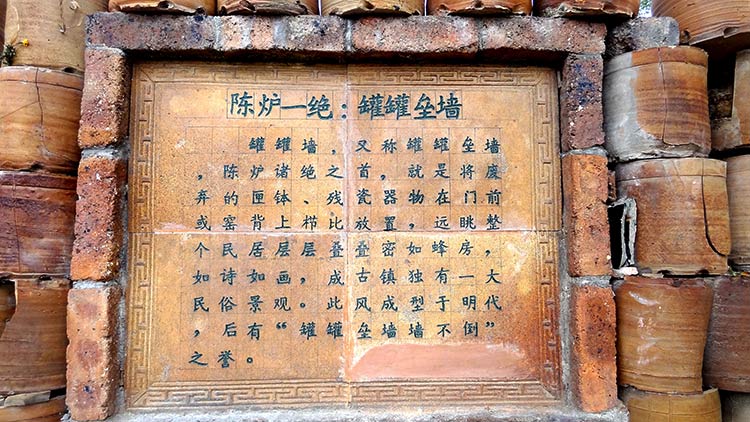 陈炉一绝：罐罐垒墙
罐罐墙，又称罐罐垒墙
，陈炉诸绝之首，就是将废
弃的匣钵、残瓷器物在门前
或窑背上栉比放置，远眺整
个民居层层叠叠密如蜂房，
如诗如画，成古镇独有一大
民俗景观。此风成型于明代
，后有“罐罐垒墙墙不倒”
之誉。